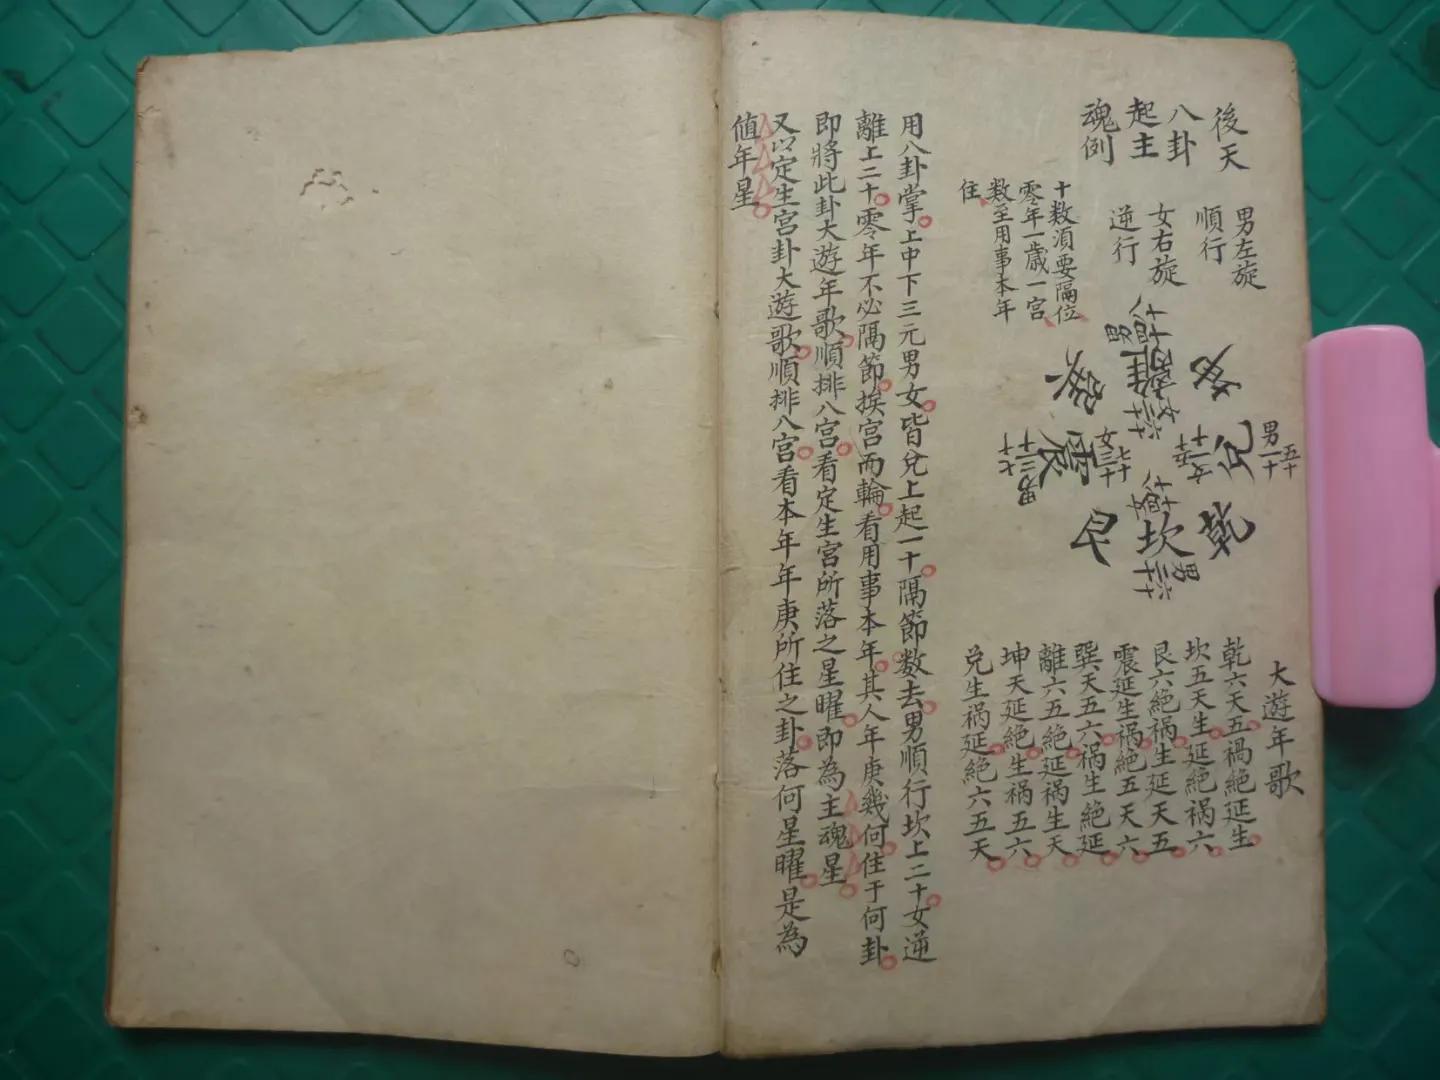 後天
八卦
起主
魂例
男左旋
順行
女右旋
逆行
十数須要隔位
零年一歲一宮
数至用事本年
住
離
巽
震
艮
坎
乾
兌
男一十
五十
女三十
七十
大遊年歌
乾六天五禍絶延生
坎五天生延絶祸六
艮六絶祸生延天五
震延生祸絶五天六
巽天五六祸生絶延
離六五絶延祸生天
坤天延絶生祸五六
兑生祸延絶六五天
用八卦掌上中下三元男女皆兌上起一十隔節数去男順行坎上二十女逆
離上二十零年不必隔節挨宮而輪看用事本年其人年庚幾何住于何卦
即將此卦大遊年歌順排八宮看定生宮所落之星曜即為主魂星
又以定生宮卦大遊歌順排八宮看本年年庚所住之卦落何星曜是為
值年星